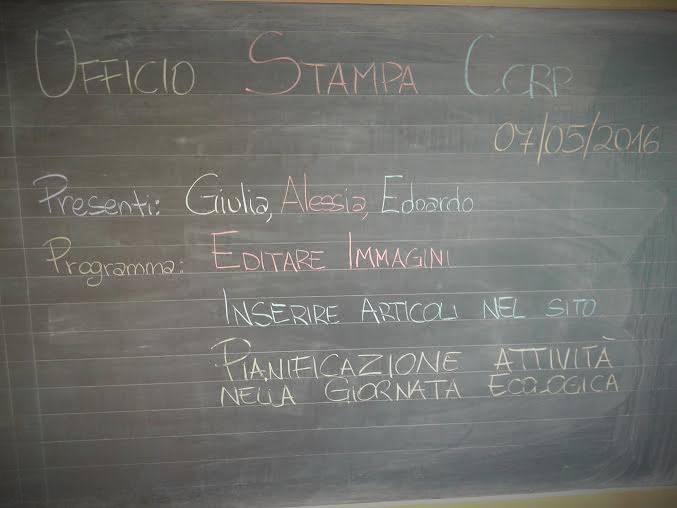 UFFICIO STAMPA CCRR
07/05/2016
Presenti: Giulia, Alessia, Edoardo
Programma: EDITARE IMMAGINI
INSERIRE ARTICOLI NEL SITO
PIANIFICAZIONE ATTIVITÀ
NELLA GIORNATA ECOLOGICA